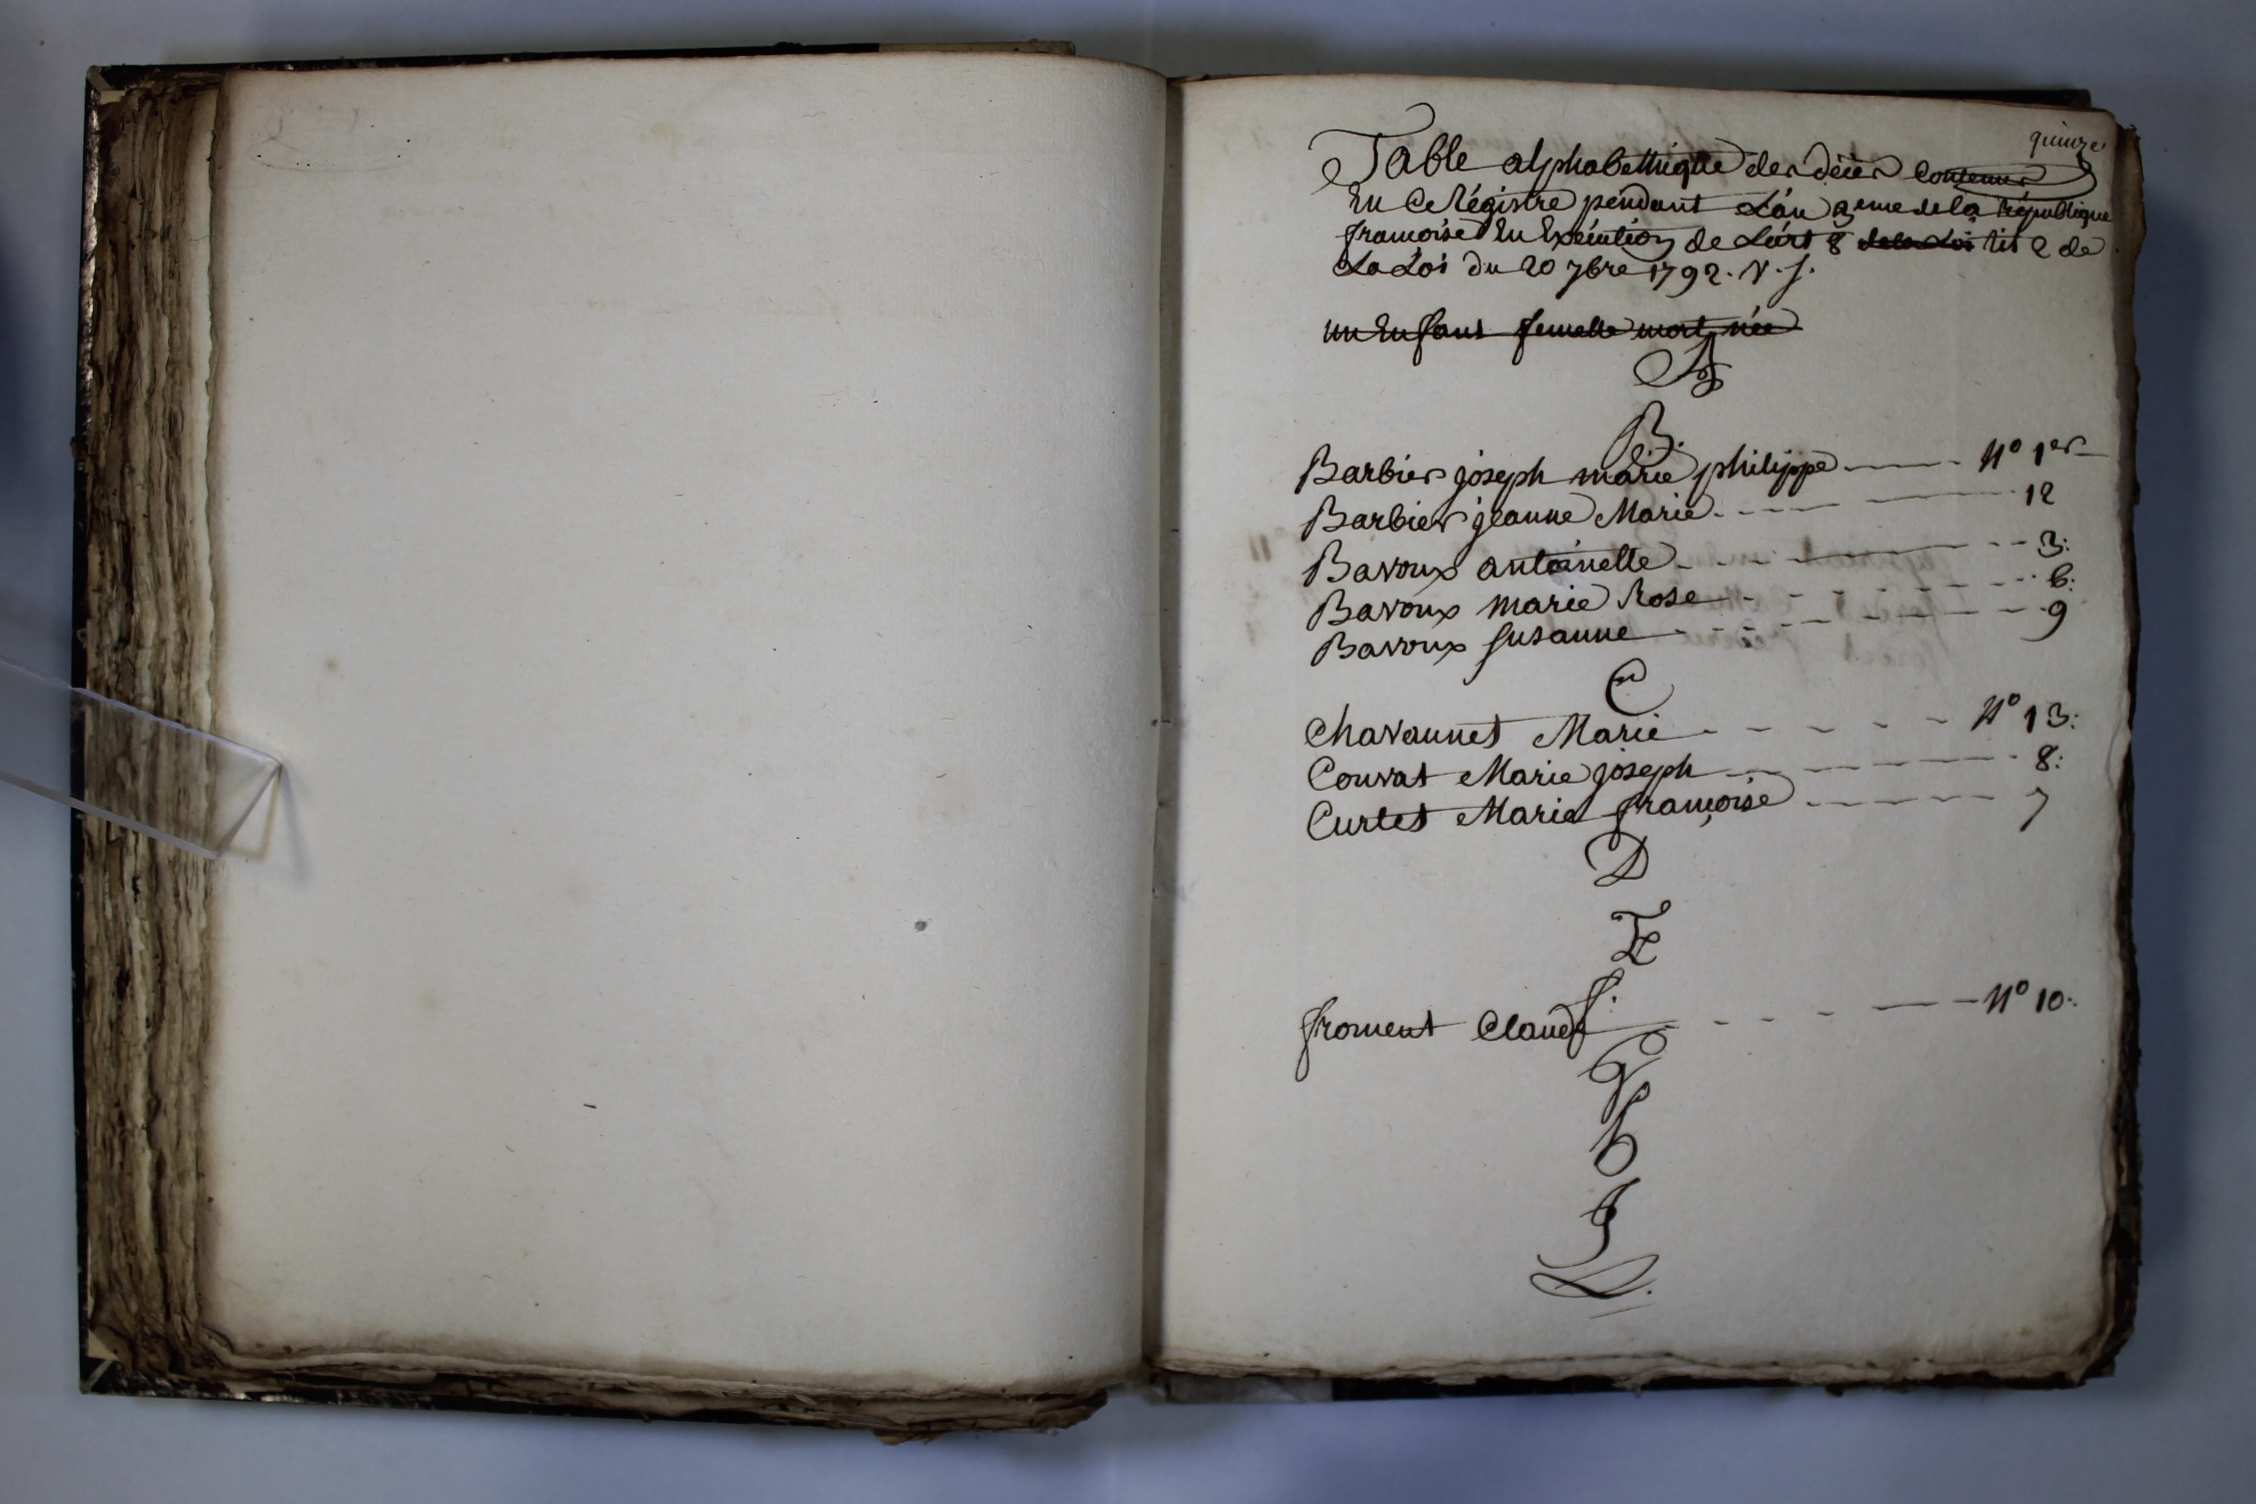 quinze
Table alphabethique des décès contenus
En ce Régistre pendant L'an 3eme de la République
francoise En Exécution de L'art 8 de la Loi tit 2 de
La Loi du 20 7bre 1792. V. s.
un Enfant femelle mort née
A
B.
Barbier joseph marie philippe N° 1er
Barbier jeanne Marie 12
Bavoux antoinette 3:
Bavoux marie Rose 6:
Bavoux susanne 9
C
Chavannet Marie N° 13:
Couvat Marie joseph 8:
Curtet Marie françoise 7
D
E
f.
froment Claude N° 10:
G
h
J
L.